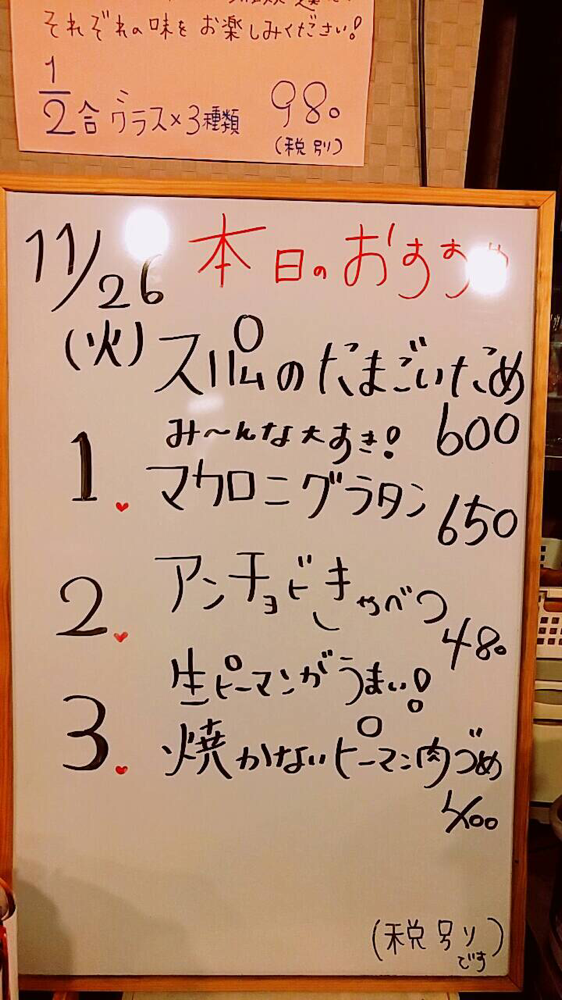 それぞれの味をお楽しみください!
1/2合グラス×3種類 980
(税別)
11/26 本日のおすすめ
(火) スパムのたまごいため
600
み〜んな大すき!
1. マカロニグラタン
650
2. アンチョビきゃべつ
480
生ピーマンがうまい!
3. 焼かないピーマン肉づめ
400
(税別りです)